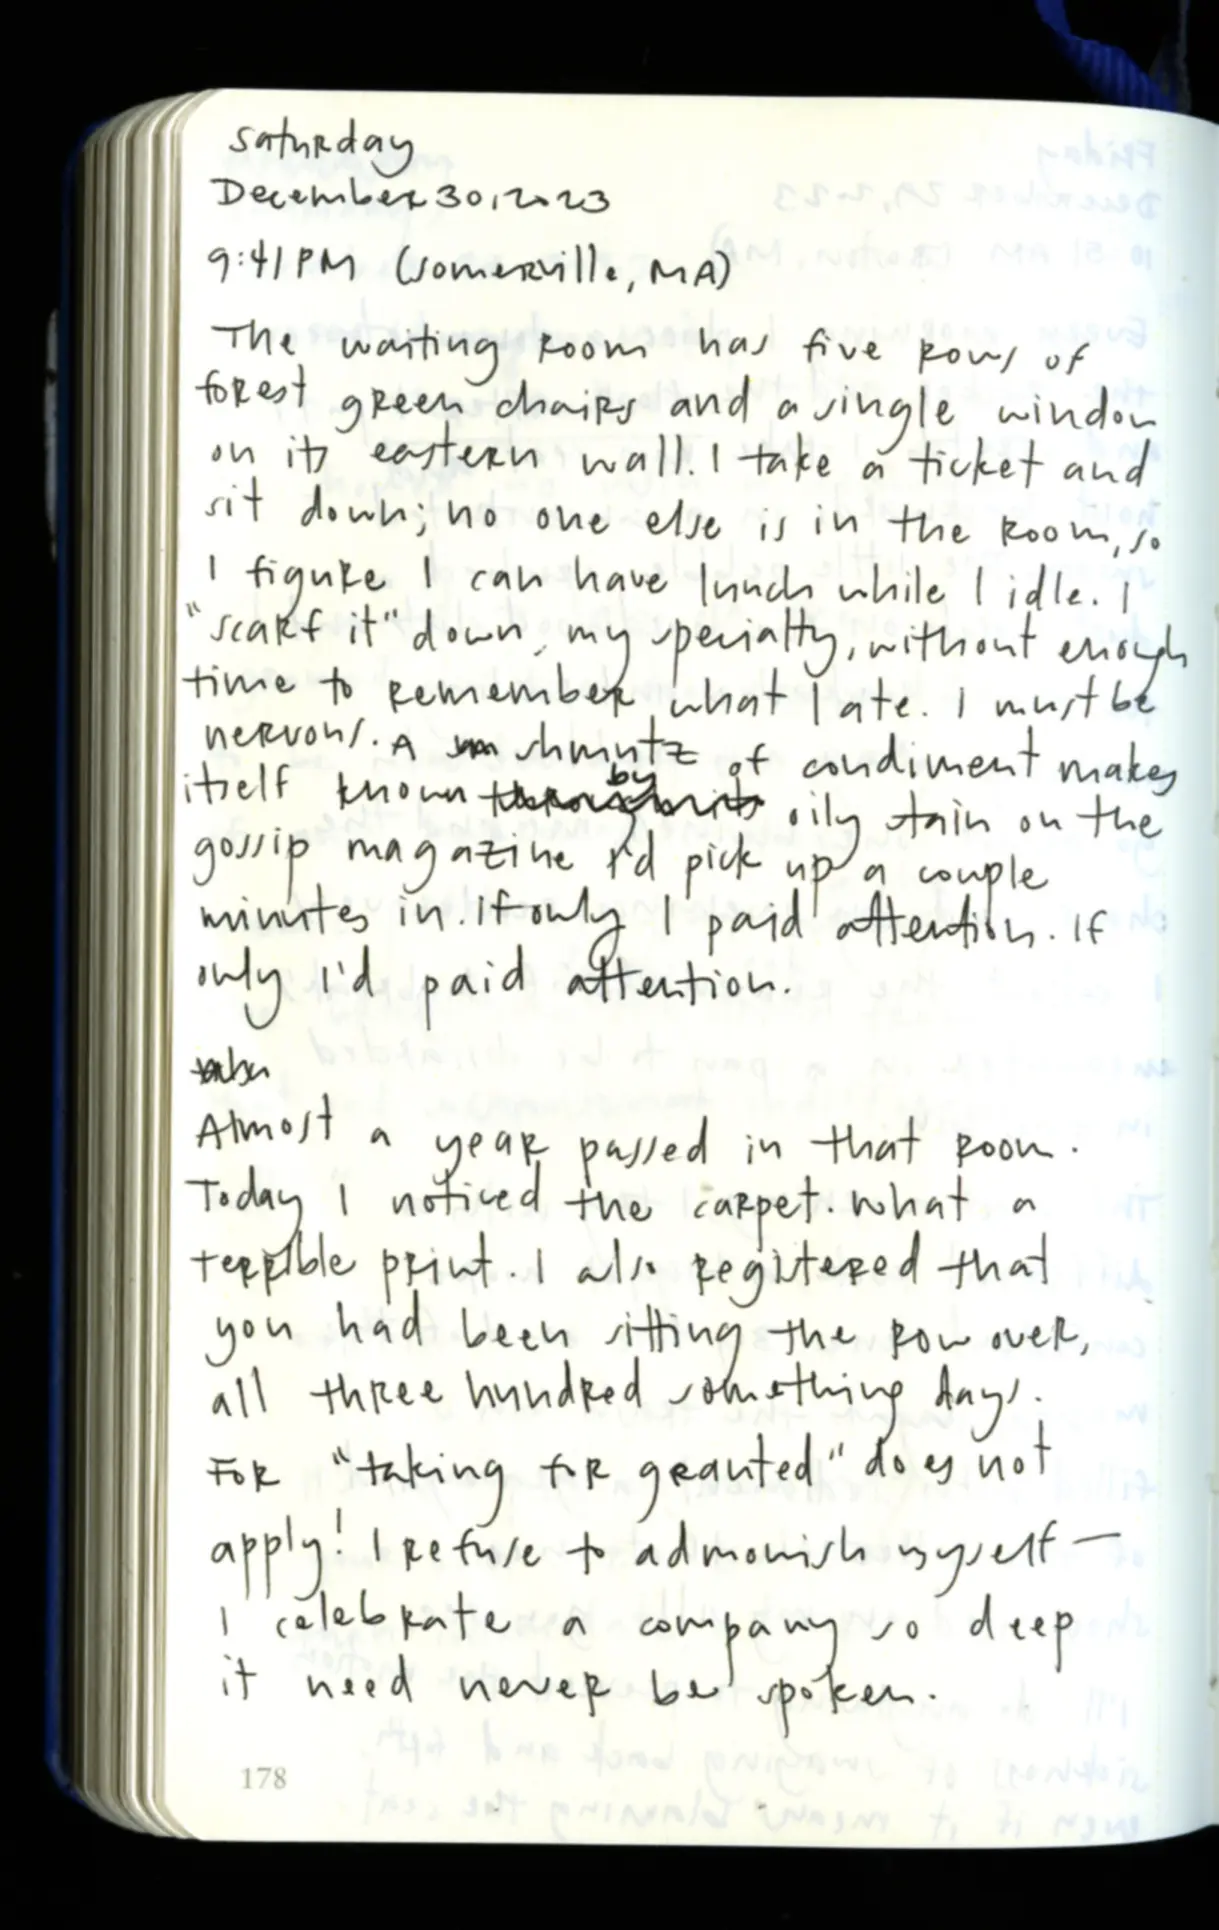 Saturday
December 30, 2023
9:41 PM (Somerville, MA)
The waiting room has five rows of
forest green chairs and a single window
on its eastern wall. I take a ticket and
sit down; no one else is in the room, so
I figure I can have lunch while I idle. I
"scarf it" down, my specialty, without enough
time to remember what I ate. I must be
nervous. A shmutz of condiment makes
itself known by oily stain on the
gossip magazine I'd pick up a couple
minutes in. If only I paid attention. If
only I'd paid attention.
Almost a year passed in that room.
Today I noticed the carpet. What a
terrible print. I also registered that
you had been sitting the row over,
all three hundred something days.
For "taking for granted" does not
apply! I refuse to admonish myself —
I celebrate a company so deep
it need never be spoken.
178